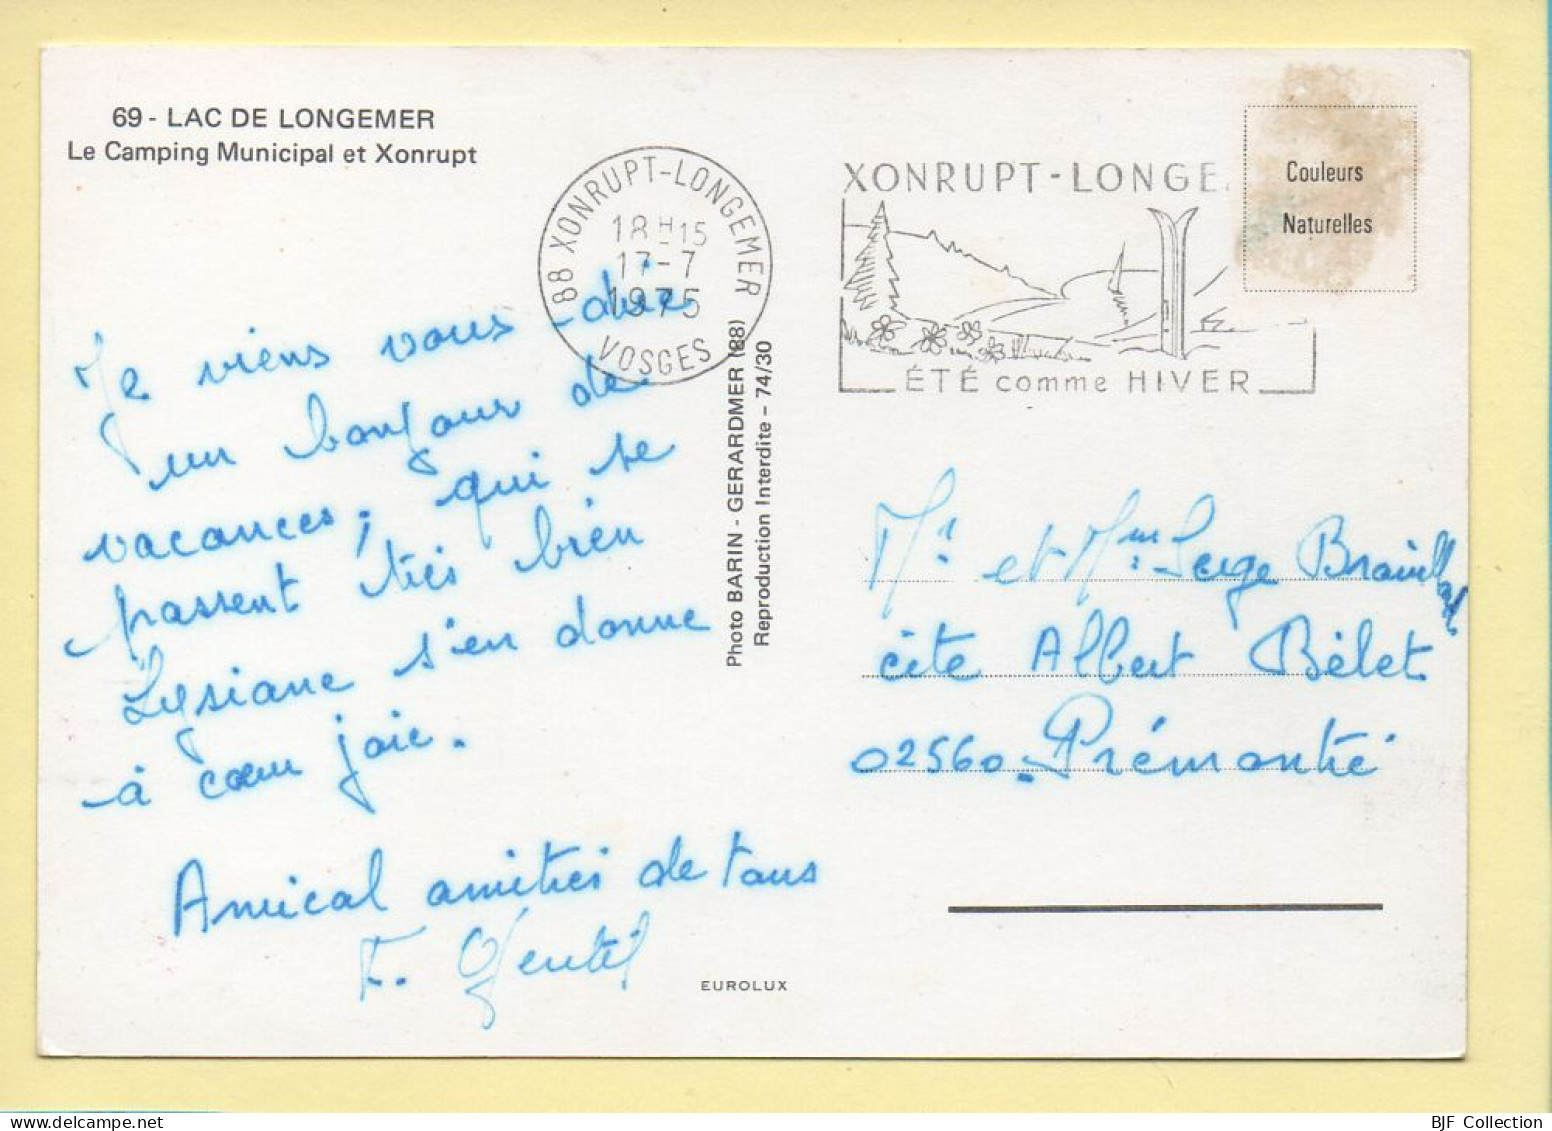 69 - LAC DE LONGEMER
Le Camping Municipal et Xonrupt
88 XONRUPT-LONGEMER
18H15
17-7
1975
VOSGES
XONRUPT - LONGE
ÉTÉ comme HIVER
Couleurs
Naturelles
Je viens vous dire
un bonjour de
vacances, qui se
passent très bien
Lysiane s'en donne
à cœur joie.
Amical amitiés de tous
F. Gentil
Photo BARIN - GERARDMER (88)
Reproduction Interdite - 74/30
Mr et Mme Serge
cité Albert Bélet
02560. Prémontré
EUROLUX
BJF Collection